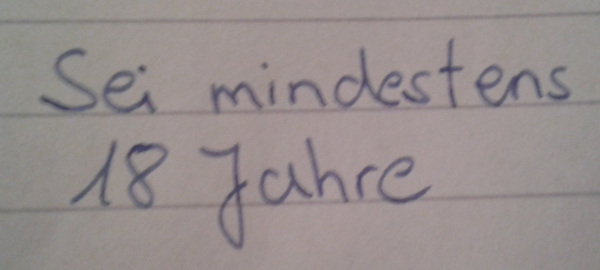 Sei mindestens
18 Jahre